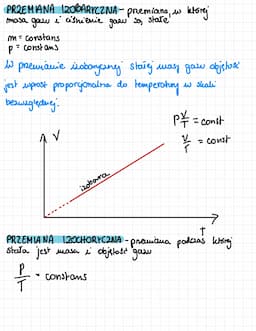 PRZEMIANA IZOBARYCZNA - przemiana, w której
masa gazu i ciśnienie gazu są stałe
m = constans
p = constans
W przemianie izobarycznej stałej masy gazu objętość
jest wprost proporcjonalna do temperatury w skali
bezwzględnej.
V
p V/T = const
V/T = const
izobara
T
PRZEMIANA IZOCHORYCZNA - przemiana podczas której
stała jest masa i objętość gazu
p/T = constans